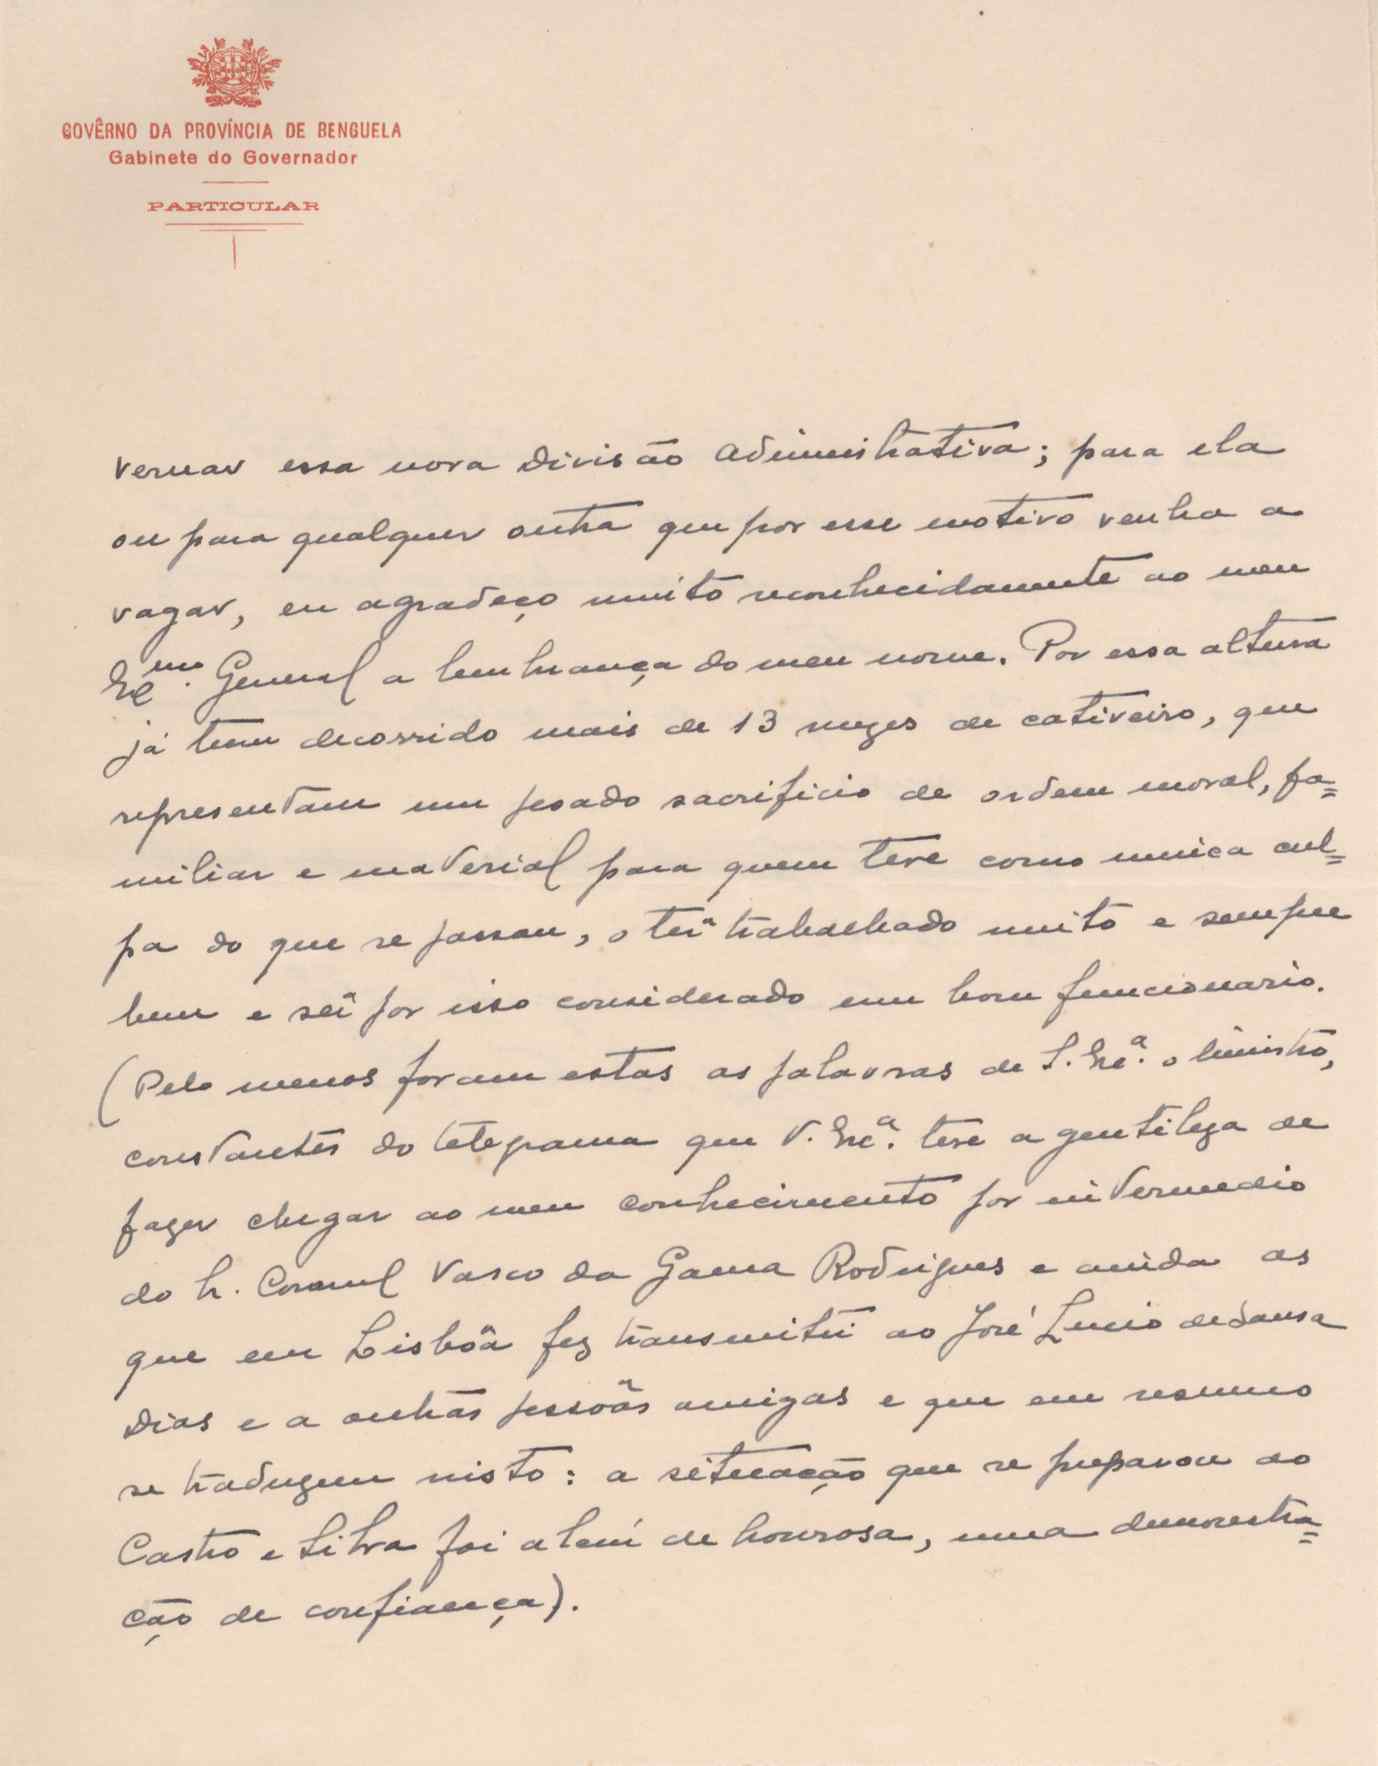 GOVÊRNO DA PROVÍNCIA DE BENGUELA
Gabinete do Governador
PARTICULAR
vernar essa nova Divisão Administrativa; para ela
ou para qualquer outra que por esse motivo venha a
vagar, eu agradeço muito reconhecidamente ao meu
Exmo. General a lembrança do meu nome. Por essa altura
já tem decorrido mais de 13 mezes de cativeiro, que
representam um pesado sacrificio de ordem moral, fa=
miliar e material para quem teve como unica cul=
pa do que se passou, o ter trabalhado muito e sempre
bem e ser por isso considerado um bom funcionario.
(Pelo menos foram estas as palavras de S. Exª. o Ministro,
constantes do telegrama que V. Excª. teve a gentileza de
fazer chegar ao meu conhecimento por intermedio
do Sr. Coronel Vasco da Gama Rodrigues e ainda as
que em Lisbôa fez transmitir ao José Lucio de Sousa
Dias e a outras pessôas amigas e que em resumo
se traduzem nisto: a situação que se preparou ao
Castro e Silva foi alem de honrosa, uma demonstra=
ção de confiança).